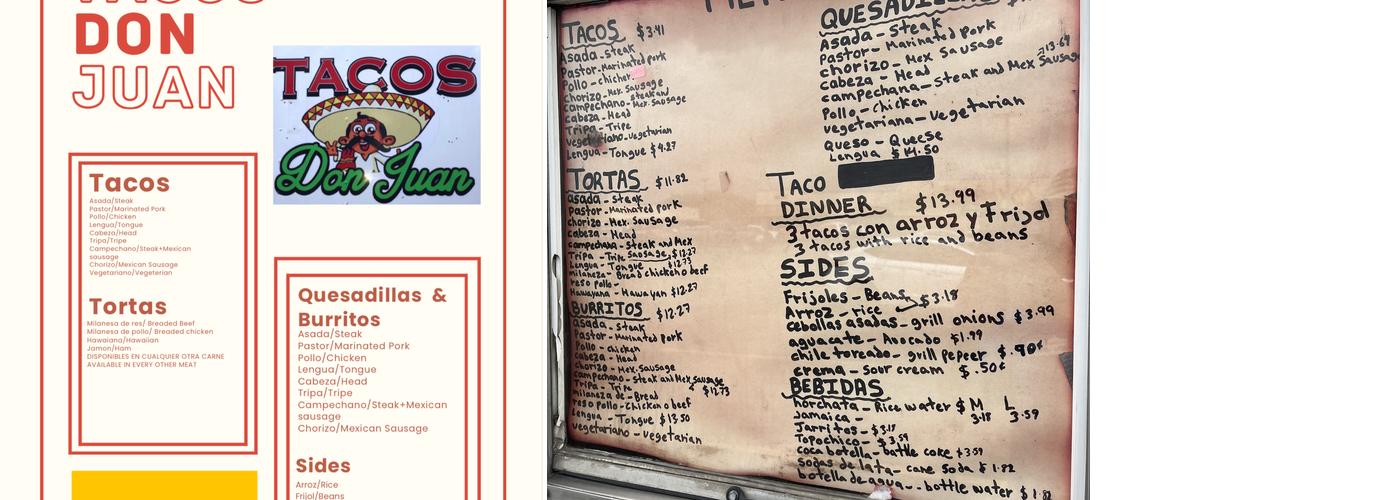 DON
JUAN
TACOS
Don Juan
Tacos
Asada/Steak
Pastor/Marinated Pork
Pollo/Chicken
Lengua/Tongue
Cabeza/Head
Tripa/Tripe
Campechano/Steak+Mexican
sausage
Chorizo/Mexican Sausage
Vegetariano/Vegeterian
Tortas
Milanesa de res/ Breaded Beef
Milanesa de pollo/ Breaded chicken
Hawaiana/Hawaiian
Jamon/Ham
DISPONIBLES EN CUALQUIER OTRA CARNE
AVAILABLE IN EVERY OTHER MEAT
Quesadillas &
Burritos
Asada/Steak
Pastor/Marinated Pork
Pollo/Chicken
Lengua/Tongue
Cabeza/Head
Tripa/Tripe
Campechano/Steak+Mexican
sausage
Chorizo/Mexican Sausage
Sides
Arroz/Rice
Frijol/Beans
TACOS $3.41
Asada-steak
Pastor-Marinated pork
Pollo-chicken
chorizo-Mex. Sausage
campechano-steak and Mex. Sausage
cabeza-Head
Tripa-Tripe
vegetariano-vegetarian
Lengua-Tongue $4.27
TORTAS $11.82
asada-steak
Pastor-Marinated pork
chorizo-Mex. Sausage
cabeza-Head
campechana-steak and Mex
Sausage $12.27
Tripa-Tripe
Lengua-Tongue $12.73
milaneza-Bread chicken o beef
res o pollo-
Hawayana-Hawayan $12.27
BURRITOS $12.27
asada-steak
Pastor-Marinated pork
Pollo-chicken
cabeza-Head
chorizo-Mex. Sausage
campechano-steak and Mex sausage
Tripa-Tripe $12.73
milaneza de-Bread
res o pollo-Chicken o beef
Lengua-Tongue $13.50
vegetariano-vegetarian
Asada-steak
Pastor-Marinated pork
chorizo-Mex Sausage
cabeza-Head
campechana-steak and Mex Sausage
Pollo-chicken
vegetariana-vegetarian
Queso-Queese
Lengua $14.50
TACO
DINNER $13.99
3 tacos con arroz y Frijol
3 tacos with rice and beans
SIDES
Frijoles-Beans $3.18
Arroz-rice
cebollas asadas-grill onions $3.99
aguacate-Avocado $1.99
chile toreado-grill pepeer $.90¢
crema-sour cream $.50¢
BEBIDAS
horchata-Rice water $ M L
Jamaica- 3.18 3.59
Jarritos-$3.18
Topochico-$3.59
coca botella-battle coke $3.59
sodas de lata-cane soda $1.82
botella de agua--bottle water $1.82